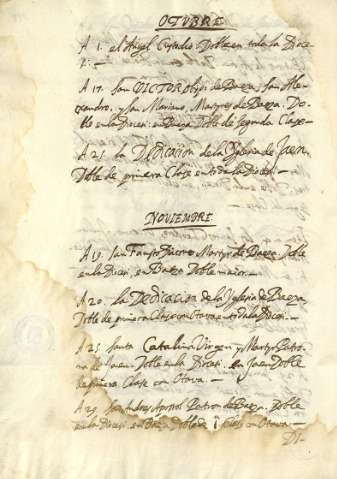 OCTUBRE
A 1. el Angel Custodio Doble en toda la Dioce-
si:
A 17. San VICTOR obispo de Baeza, San Ale-
xandro, y San Mariano, Martyres de Baeza. Do-
ble en la Diocesi: en Baeza Doble de segunda Clase
A 25. La Dedicacion de la Yglesia de Jaen,
Doble de primera Clase en toda la Diocesi.
NOVIEMBRE
A 19. San Fausto Martyr de Baeza. Doble
en la Diocesi, en Baeza Doble maior.
A 20. La Dedicacion de la Yglesia de Baeza,
Doble de primera Clase con Otava en toda la Diocesi.
A 25. Santa Catalina Virgen y Martyr Patro-
na de Jaen. Doble en la Diocesi. en Jaen Doble
de primera Clase con Otava.
A 29. San Andres Apostol Patron de Baeza. Doble
en la Diocesi, en Baeza Doble de Clase con Otava.
DI-